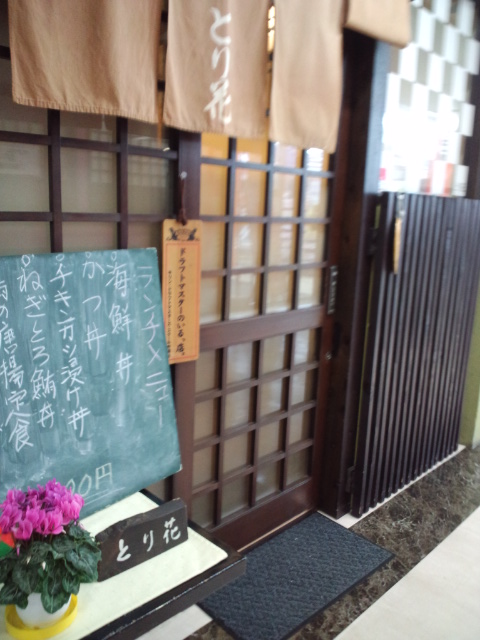 とり花
ドラフトマスターのいる、店。
ランチメニュー
海鮮丼
かつ丼
チキンカツ浸ケ丼
ねぎとろ鮪丼
の唐揚定食
00円
とり花